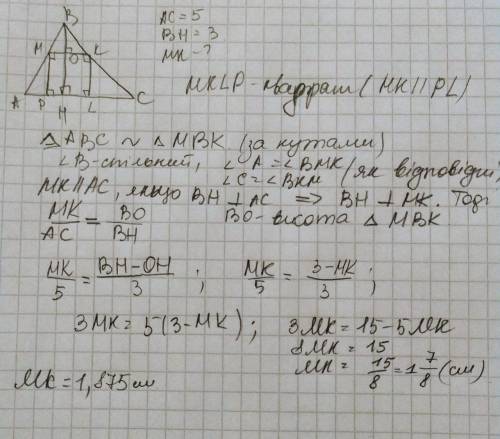 B
M O K
A P H L C
AC = 5
BH = 3
MK - ?
MKLP - квадрат (MK || PL)
△ABC ~ △MBK (за кутами)
∠B - спільний, ∠A = ∠BMK (як відповідні)
∠C = ∠BKM
MK || AC, якщо BH ⊥ AC => BH ⊥ MK. Тоді
MK/AC = BO/BH BO - висота △ MBK
MK/5 = BH-OH/3 ; MK/5 = 3-MK/3 ;
3MK = 5(3-MK) ; 3MK = 15 - 5MK
8MK = 15
MK = 15/8 = 1 7/8 (см)
MK = 1,875 см